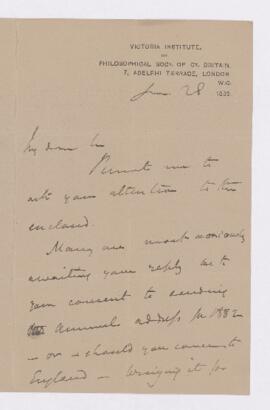 VICTORIA INSTITUTE,
OR
PHILOSOPHICAL SOCY. OF GT. BRITAIN.
7, ADELPHI TERRACE, LONDON
W.C.
28
My dear Sir
Permit me to
ask your attention to the
enclosed.
Many are most anxiously
awaiting your reply as to
your consent to sending
Annual address for 1882
– or – should you come to
England – bringing it for